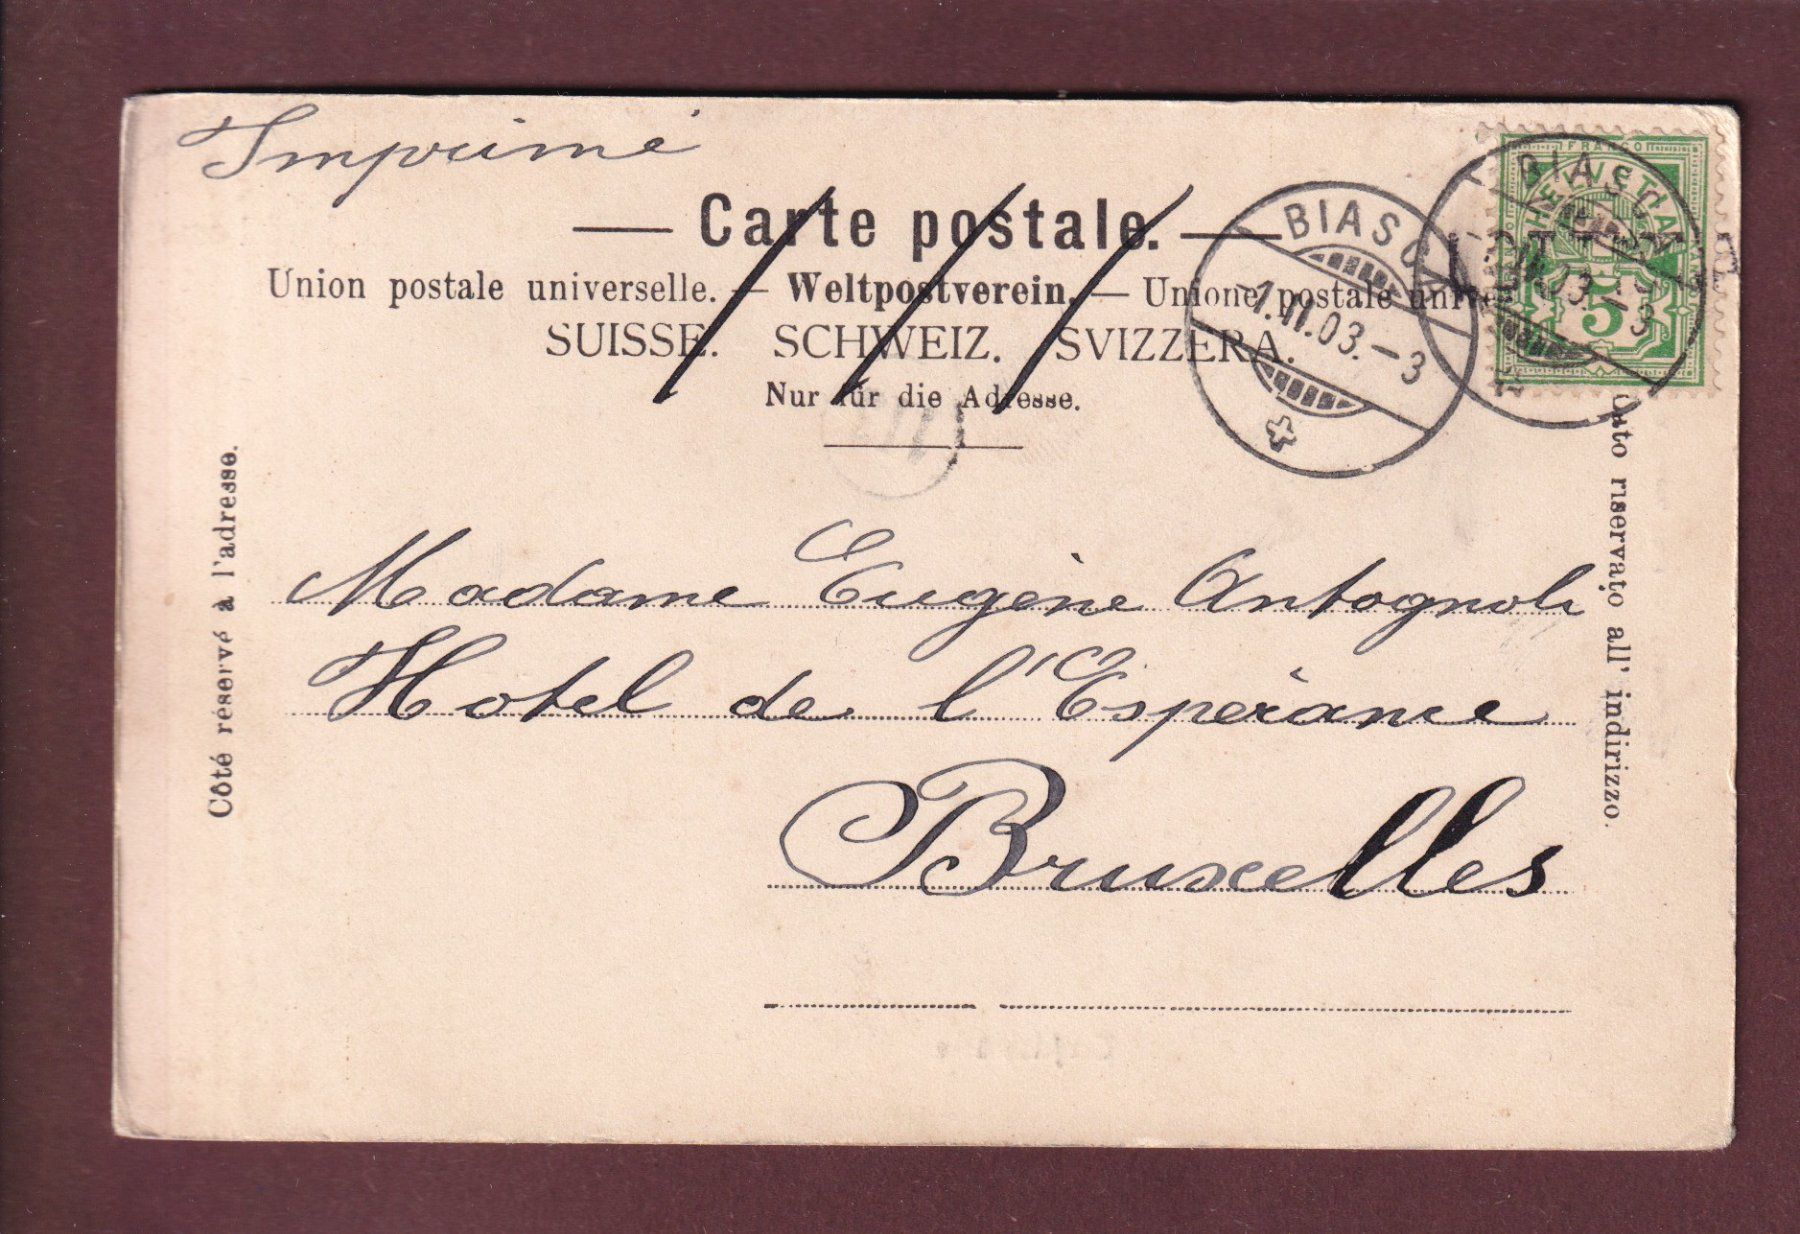 Imprimé
Carte postale.
Union postale universelle. — Weltpostverein. — Unione postale
SUISSE. SCHWEIZ. SVIZZERA.
Nur für die Adresse.
BIASCA
-1.II.03.-3
BIASCA
03.-3
FRANCO
HELVETIA
5
Côté réservé à l'adresse.
riservato all' indirizzo.
Madame Eugène Antognoli
Hotel de l'Espèrance
Bruxelles